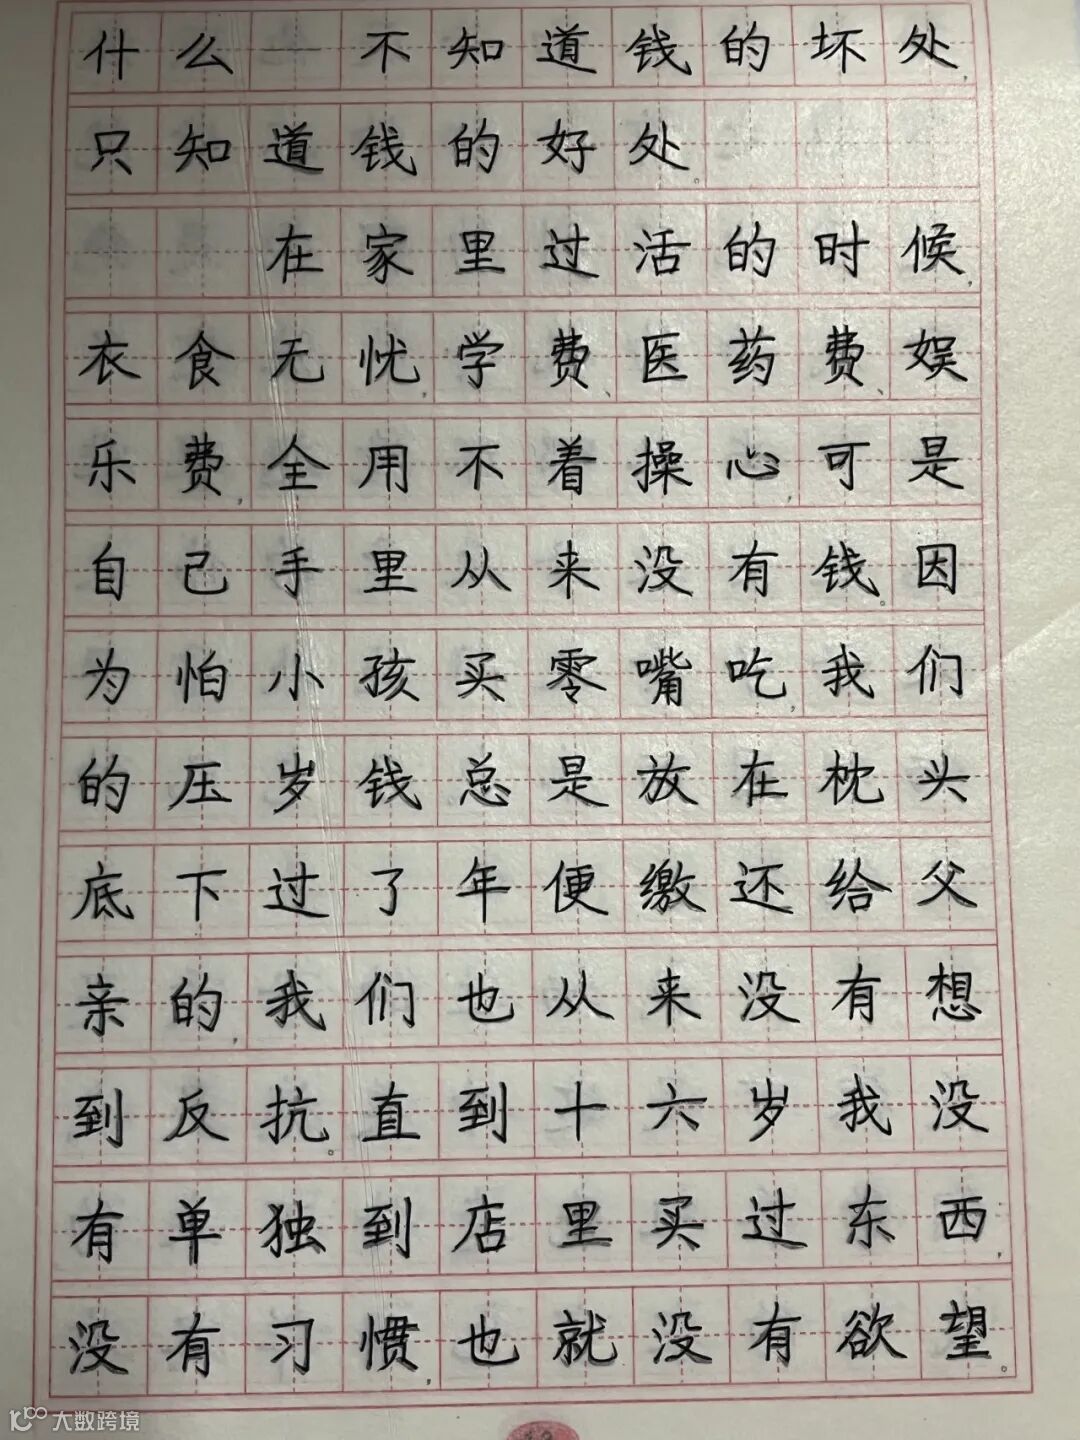 什么一不知道钱的坏处，
只知道钱的好处。
在家里过活的时候，
衣食无忧，学费、医药费、娱
乐费，全用不着操心，可是
自己手里从来没有钱。因
为怕小孩买零嘴吃，我们
的压岁钱总是放在枕头
底下过了年便缴还给父
亲的，我们也从来没有想
到反抗。直到十六岁我没
有单独到店里买过东西，
没有习惯，也就没有欲望。
大数跨境